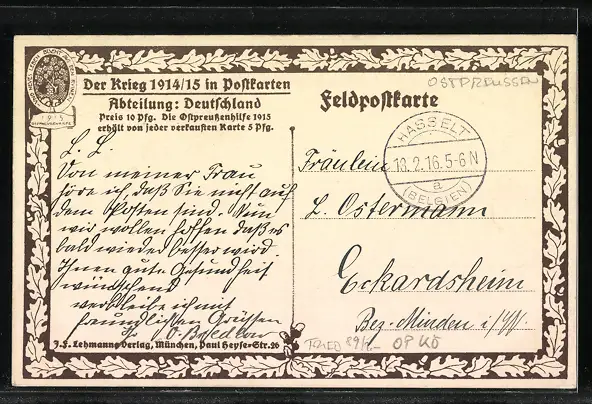 Der Krieg 1914/15 in Postkarten
Abteilung: Deutschland
Preis 10 Pfg. Die Ostpreußenhilfe 1915
erhält von jeder verkauften Karte 5 Pfg.
1915
L. L.
Von meiner Frau
höre ich daß Sie nicht auf
dem Posten sind. Nun
wir wollen hoffen daß es
bald wieder besser wird.
Ihnen gute Gesundheit
wünschend
verbleibe ich mit
freundlichen Grüssen
J. F. Lehmanns Verlag, München, Paul Heyse-Str. 26
OSTPREUSSEN
Feldpostkarte
HASSELT
13.2.16.5-6N
a
(BELGIEN)
Fräulein
L. Ostermann
Eckardsheim
Bez. Minden i/W.
OPKÖ